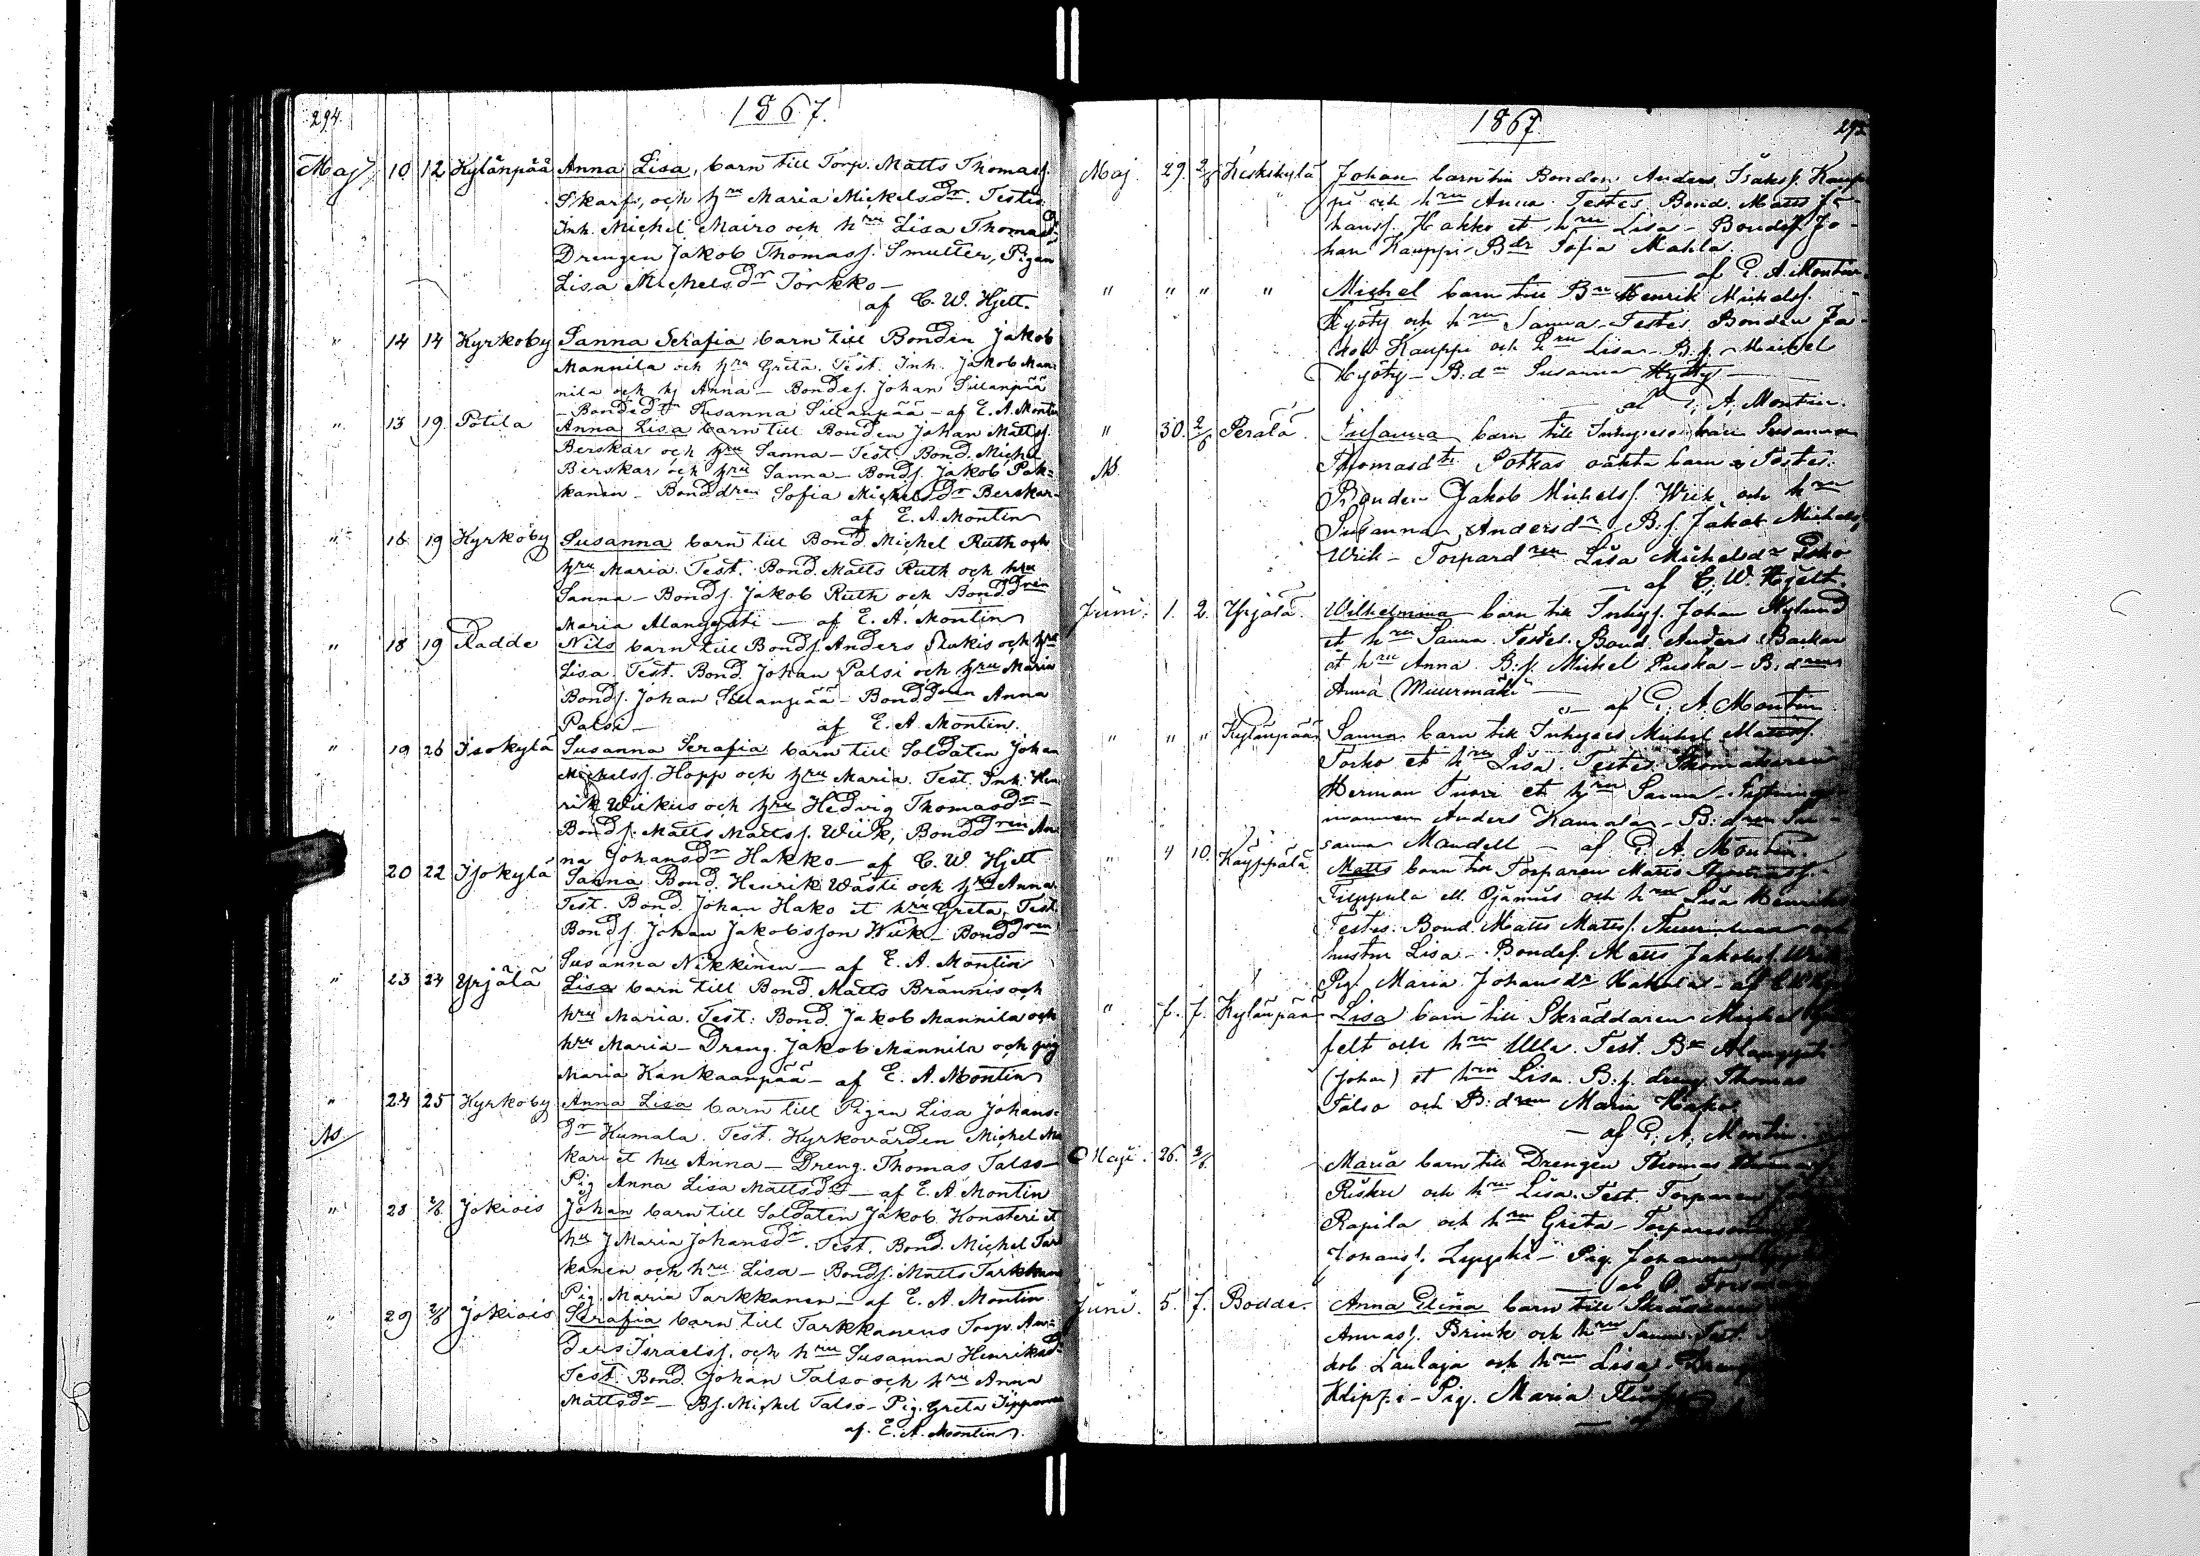 294.
1867.
Maj 10 12 Kylänpää Anna Lisa, barn till Torp. Matts Thomass.
Skarfi, och hru Maria Mickelsdr. Testes
Inh. Michel Mairo och hru Lisa Thomasd.
Drengen Jakob Thomass. Smutter, Pigan
Lisa Michelsdr Torkko —
af C. W. Hjelt.
" 14 14 Kyrkoby Sanna Serafia barn till Bonden Jakob
Mannila och hru Greta. Test. Inh. Jakob Man-
nila och hj Anna — Bondes. Johan Sillanpää
— Bonded Susanna Sillanpää — af E. A. Montin
" 13 19 Potila Anna Lisa barn till Bonden Johan Mattss.
Berskar och hru Sanna — Test. Bond. Michel
Berskar, och hru Sanna — Bonds. Jakob Pok-
kanen — Bonddren Sofia Mickelsdr Berskar —
af E. A. Montin
" 16 19 Kyrkoby Susanna barn till Bond. Michel Ruth och
hru Maria. Test. Bond. Matts Ruth och hru
Sanna — Bonds. Jakob Ruth och Bonddren
Maria Alangyäti — af E. A. Montin
" 18 19 Radde Nils barn till Bonds. Anders Slukis och hru
Lisa. Test. Bond. Johan Palsi och hru Maria
Bonds. Johan Sillanpää — Bonddren Anna
Palsi — af E. A. Montin.
" 19 26 Isokylä Susanna Serafia barn till Soldaten Johan
Michelss. Hopp och hru Maria. Test. Inh. Hen
rik Wiikus och hru Hedvig Thomasdr —
Bonds. Matts Mattss. Wiik, Bonddren An
na Johansdr Hakko — af C. W. Hjelt
20 22 Isokylä Sanna Bond. Henrik Wästi och hru Anna.
Test. Bond. Johan Hako et hru Greta, Test.
Bonds. Johan Jakobsson Wiik — Bonddren
Susanna Nikkinen — af E. A. Montin
" 23 24 Yrjälä Lisa barn till Bond. Matts Brännis och
hru Maria. Test: Bond. Jakob Mannila och
hru Maria — Dreng. Jakob Mannila och pig
Maria Kankaanpää — af E. A. Montin
" 24 25 Kyrkoby Anna Lisa barn till Pigan Lisa Johans-
dr Kumala. Test. Kyrkovärden Michel Ma
kari et hu Anna — Dreng. Thomas Talso —
Pig Anna Lisa Mattsdr — af E. A. Montin
" 28 2/6 Jokiois Johan barn till Soldaten Jakob Konsteri et
hu J Maria Johansdr. Test. Bond. Michel Tar
kanen och hru Lisa — Bonds. Matts Tarkkane
Pig. Maria Tarkkanen — af E. A. Montin
" 29 2/6 Jokiois Serafia barn till Tarkkanens Torp. An-
ders Israelss. och hru Susanna Henriksd.
Test. Bond. Johan Talso och hru Anna
Mattsdr — Bs. Michel Talso — Pig. Greta
af. E. A. Montin.
1867
Maj. 29. 2/6 Keskikylä Johan barn till Bonden Anders Isakss. Kaup
pi och hru Anna. Testes Bond. Matts Jo-
hanss. Hakko et hru Lisa — Bondes. Jo-
han Kauppi Bdr Sofia Mahla.
— af E. A. Montin.
" " " " Michel barn till Bn Henrik Michelss.
Hyöty och hru Sanna — Testes Bonden Ja-
kob Kauppi och hru Lisa — B.s. Michel
Hyöty — B.dr Susanna Hyöty —
af E. A. Montin.
" 30. 2/6 Perälä. Susanna barn till Inhyses Susanna
Thomasdtr Potkas oäkta barn Testes.
Bonden Jakob Michelss. Wiik och hru
Susanna Andersdr B.s. Jakob Michels
Wiik — Torpardren Lisa Michelsdr
— af C. W. Hjelt.
Juni. 1. 2. Yrjälä. Wilhelmina barn till Inhys. Johan Nylund
et hru Sanna. Testes. Bond. Anders Backar
et hru Anna. B.s. Michel Puska — B.dren
Anna Muurmäki —
— af E. A. Montin.
" " " Kylänpää Sanna barn till Inhyses Michel Mattss.
Torko et hru Lisa. Testes Skomakaren
Herman Tuori et hru Sanna —
mannen Anders Kamala — B:dren Su-
sanna Mandell — af E. A. Montin.
" 4 10. Käyppälä Matts barn till Torparen Matts
Filppula ell. Ojamus och hru Lisa Henriks
Testes. Bond. Matts Mattss. och
hustru Lisa — Bondes. Matts Jakobss. Wiik
Pig. Maria Johansdr Hakola —
" 7. 7. Kylänpää Lisa barn till Skräddaren Michel
felt och hru Ulla. Test. Bn Alangyäti
(Johan) et hru Lisa. B.s. dreng Thomas
Talso och B:dren Maria Hako.
— af E. A. Montin.
Maji. 26. 2/6. Maria barn till Drengen Thomas
Risku och hru Lisa. Test. Torparen
Rapila och hru Greta — Torparesonen
Johanss. Lyyski — Pig. Johanna
Juni. 5. 7. Bodde. Anna Elina barn till Skräddaren
Annass. Brink och hru Sanna. Test.
kob Laulaja och hru Lisa — Dreng
Klipsi — Pig. Maria